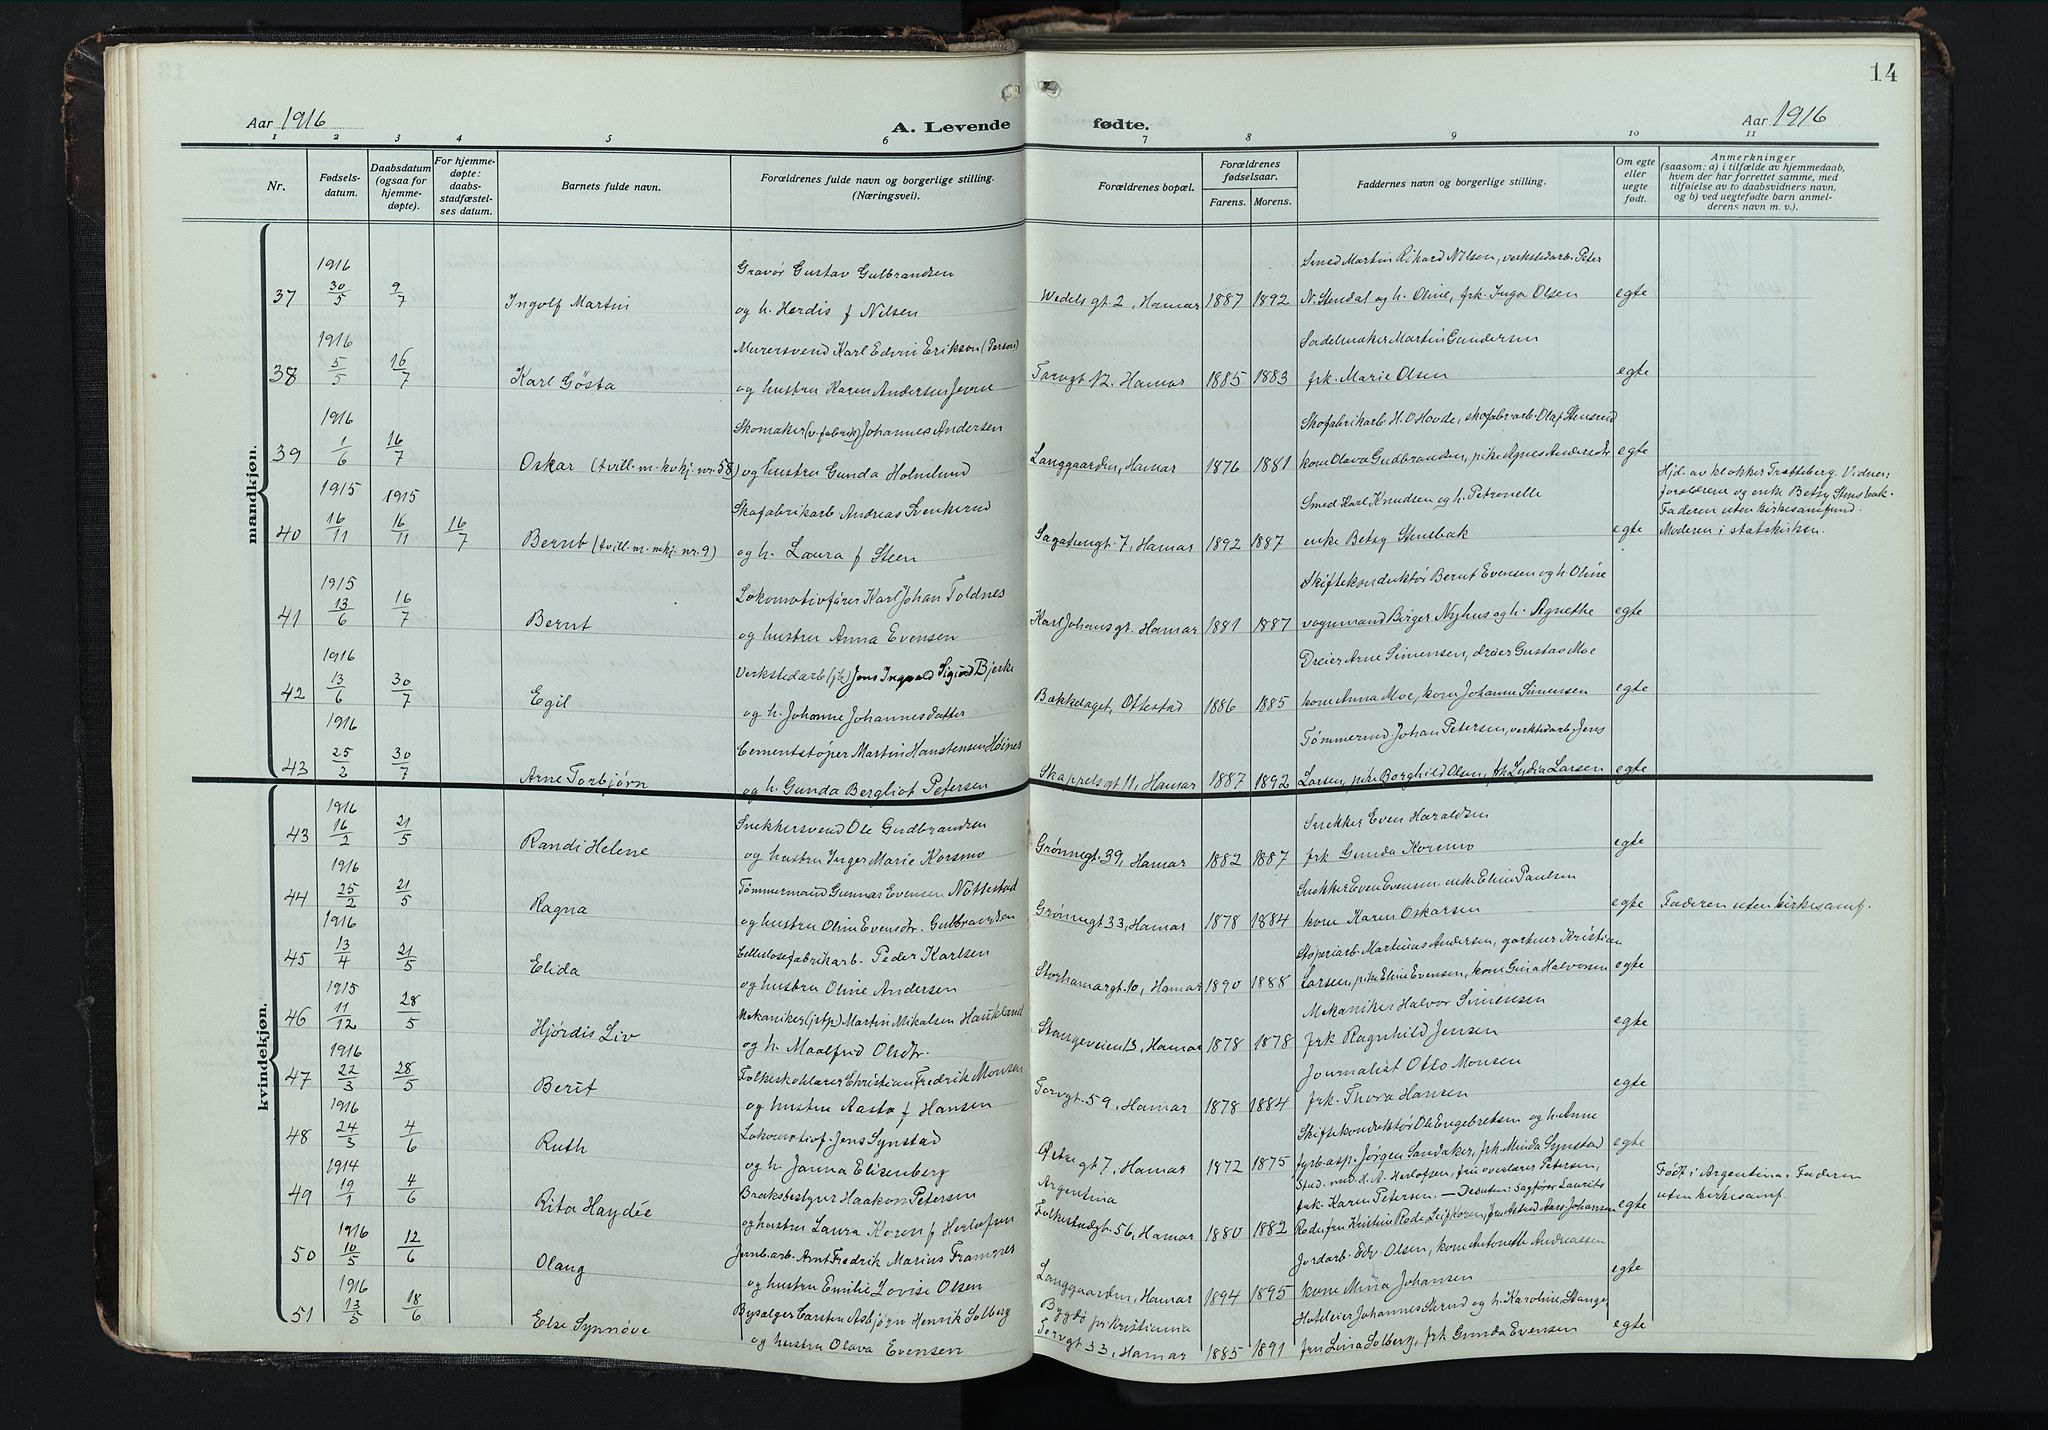 14
Aar 1916 A. Levende fødte. Aar 1916
1 2 3 4 5 6 7 8 9 10 11
Nr. Fødsels-datum. Daabsdatum (ogsaa for hjemme-døpte). For hjemme-døpte: daabs-stadfæstel-ses datum. Barnets fulde navn. Forældrenes fulde navn og borgerlige stilling. (Næringsvei). Forældrenes bopæl. Forældrenes fødselsaar. Farens. Morens. Faddernes navn og borgerlige stilling. Om egte eller uegte født. Anmerkninger (saasom: a) i tilfælde av hjemmedaab, hvem der har forrettet samme, med tilføielse av to daabsvidners navn, og b) ved uegtefødte barn anmel-derens navn m. v.).
mandkjøn.
1916 Gravør Gustav Gulbrandsen Smed Martin Rihard Nilsen, verkstedarb. Peter
37 30/5 9/7 Ingolf Martin og h. Herdis f Nilsen Wedels gt. 2, Hamar 1887 1892 N. Stendal og h. Oline, frk. Inga Olsen egte
1916 Murersvend Karl Edvin Erikson (Person) Sadelmaker Martin Gundersen
38 5/5 16/7 Karl Gösta og hustru Karen Andersen Jevne Torvgt 12. Hamar 1885 1883 frk. Marie Olsen egte
1916 Skomaker (v. fabrik) Johannes Andersen Skofabrikarb H. O Hovde, skofabr.arb. Olaf Stensrud
39 1/6 16/7 Oskar (tvill. m. kvkj. nr. 58) og hustru Gunda Holmlund Langgaarden, Hamar 1876 1881 kone Olava Gudbrandsen, pike Agnes Andersdtr egte
1915 1915 Skofabrikarb Andreas Svenkerud Smed Karl Knudsen og h. Petronelle
Hjd. av klokker Trætteberg. Vidner:
forældrene og enke Betsy Stensbak.
Faderen uten kirkesamfund.
40 16/11 16/11 16/7 Bernt (tvill. m. mkj. nr. 9) og h. Laura f Steen Sagatungt. 7, Hamar 1892 1887 enke Betsy Stensbak egte Moderen i statskirken.
1915 Lokomotivfører Karl Johan Toldnes Skiftekonduktør Bernt Evensen og h. Oline
41 13/6 16/7 Bernt og hustru Anna Evensen Karl Johans gt. Hamar 1881 1887 vognmand Birger Nyhus og h. Agnethe egte
1916 Verkstedarb (jb) Jens Ingvald Sigurd Bjerke Dreier Arne Simensen, dreier Gustav Moe
42 13/6 30/7 Egil og h. Johanne Johannesdatter Bækkelaget, Ottestad 1886 1885 kone Anna Moe, kone Johanne Simensen egte
1916 Cementstøper Martin Hanstensen Høines Tømmermd. Johan Petersen, verkstedarb. Jens
43 25/2 30/7 Arne Torbjørn og h. Gunda Bergliot Petersen Skappelsgt 11, Hamar 1887 1892 Larsen, pike Borghild Olsen, frk Lydia Larsen egte
kvindekjøn.
1916 Snekkersvend Ole Gudbrandsen Snekker Even Haraldsen
43 16/2 21/5 Randi Helene og hustru Inger Marie Korsmo Grønnegt. 39, Hamar 1882 1887 frk Gunda Korsmo egte
1916 Tømmermand Gunnar Evensen Nöttestad Snekker Even Evensen, enke Eline Paulsen
44 25/2 21/5 Ragna og hustru Oline Evensdtr. Gulbrandsen Grønnegt 33, Hamar 1878 1884 kone Karen Oskarsen egte Faderen uten kirkesamf.
1916 Cellulosefabrikarb. Peder Karlsen Støperiarb. Martinus Andersen, gartner Kristian
45 13/4 21/5 Elida og hustru Oline Andersen Storhamargt. 10, Hamar 1890 1888 Larsen, pike Eline Evensen, kone Gina Halvorsen egte
1915 Mekaniker (jstp) Martin Mikalsen Haukland Mekaniker Halvor Simensen
46 11/12 28/5 Hjørdis Liv og h. Maalfrid Olsdtr. Stangeveien 13, Hamar 1878 1878 frk Ragnhild Jensen egte
1916 Folkeskolelærer Christian Fredrik Monsen Journalist Otto Monsen
47 22/3 28/5 Berit og hustru Aasta f Hansen Torvgt. 59, Hamar 1878 1884 frk. Thora Hansen egte
1916 Lokomotivf. Jens Synstad Skiftekonduktør Ole Engebretsen og h. Anne
48 24/3 4/6 Ruth og h. Janna Elisenberg Østregt 7, Hamar 1872 1875 fyrb.asp. Jørgen Sandaker, frk. Minda Synstad egte
1914 Bruksbestyrer Haakon Petersen Argentina Stud. med. H. A. Herlofsen, fru overlærer Petersen, Født i Argentina. Faderen
49 19/1 4/6 Rita Haydée og hustru Laura Koren f Herlofsen Folkestadgt. 56, Hamar 1880 1882 frk. Karen Petersen. — Desuten: sagfører Laurits egte uten kirkesamf.
Rode, fru Kristine Rode, Leif Koren, fru Astrid Aars-Johansen
1916 Jernb.arb. Arnt Fredrik Marius Framnes Jordarb. Edv. Olsen, kone Antonette Andreassen
50 10/5 12/6 Olaug og hustru Emilie Lovise Olsen Langgaarden, Hamar 1894 1895 kone Mina Johansen egte
1916 Bysælger Carsten Asbjørn Henrik Solberg Bygdø pr Kristiania Hoteleier Johannes Skrud og h. Karoline, Stange,
51 13/5 18/6 Else Synnöve og hustru Olava Evensen Torvgt 33, Hamar 1885 1891 fru Lina Solberg, frk Gunda Evensen egte